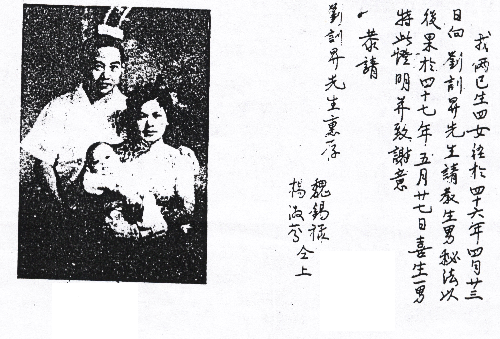 我兩已生四女後於四十六年四月廿三
日向劉訓昇先生請教生男秘法以
後果於四十七年五月廿七日喜生一男
特此證明并致謝意
恭請
劉訓昇先生惠存
魏錫
楊淑 仝上